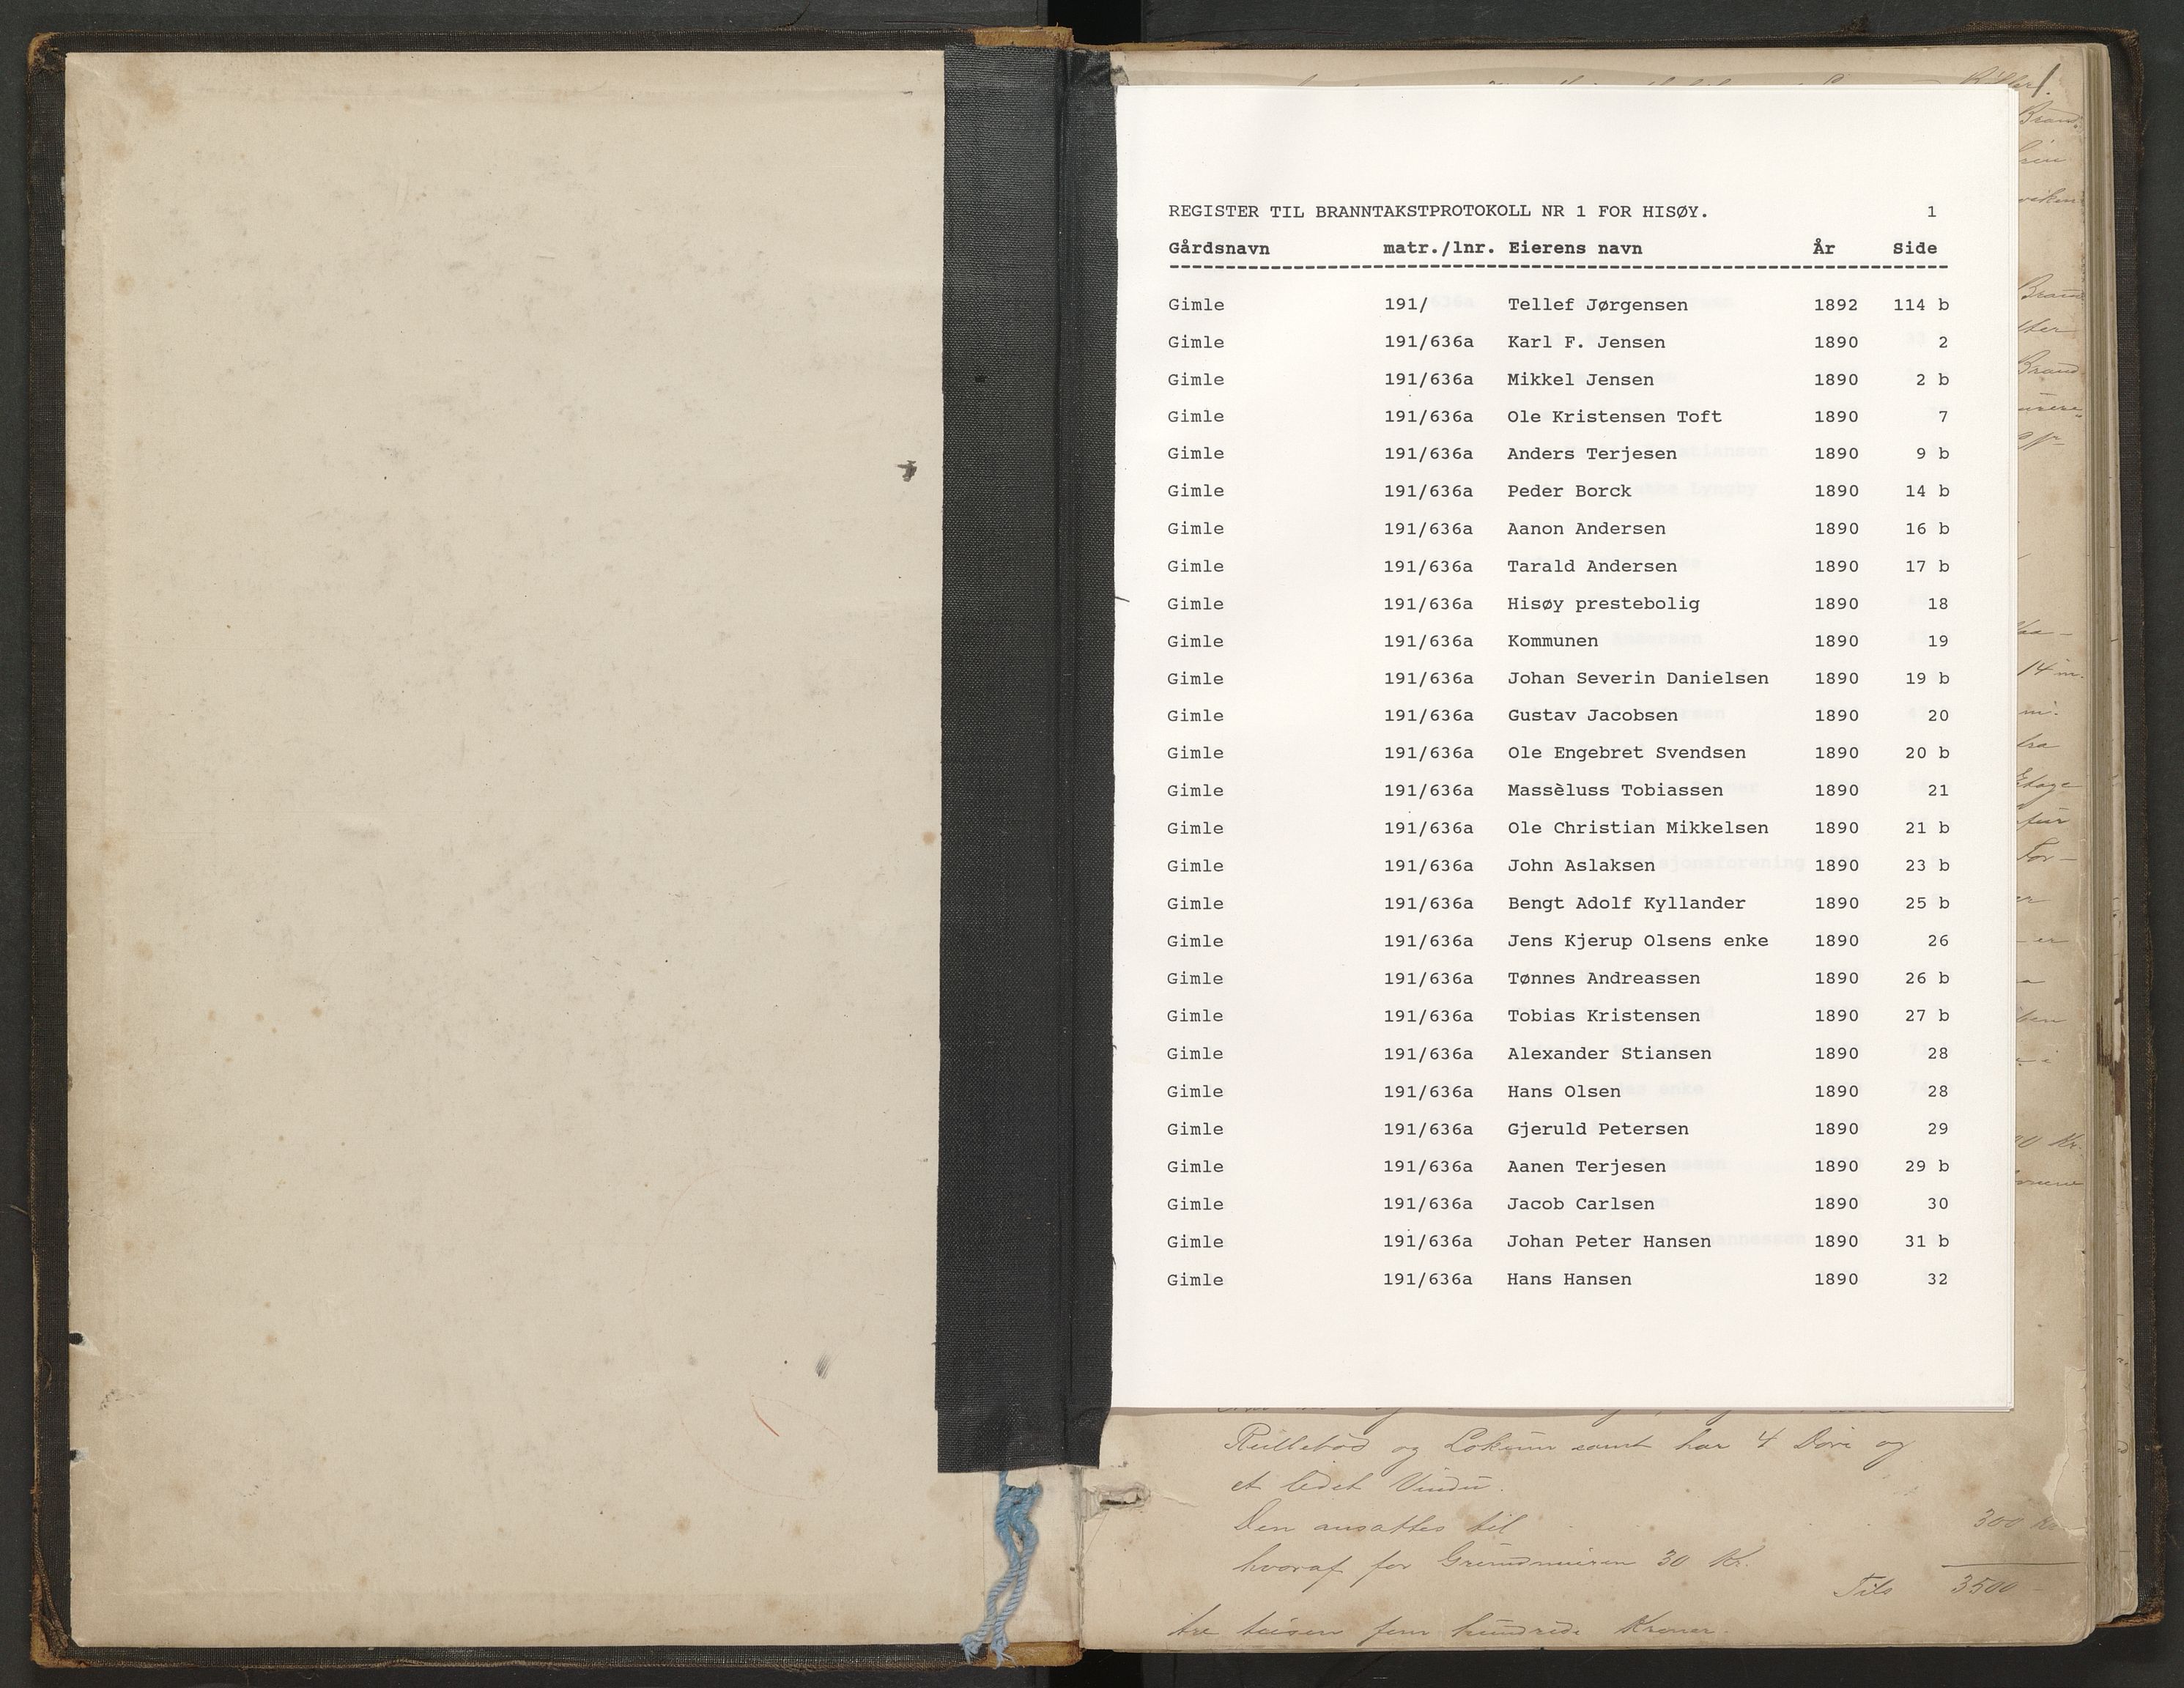 REGISTER TIL BRANNTAKSTPROTOKOLL NR 1 FOR HISØY. 1
Gårdsnavn matr./lnr. Eierens navn År Side
Gimle 191/ Tellef Jørgensen 1892 114 b
Gimle 191/636a Karl F. Jensen 1890 2
Gimle 191/636a Mikkel Jensen 1890 2 b
Gimle 191/636a Ole Kristensen Toft 1890 7
Gimle 191/636a Anders Terjesen 1890 9 b
Gimle 191/636a Peder Borck 1890 14 b
Gimle 191/636a Aanon Andersen 1890 16 b
Gimle 191/636a Tarald Andersen 1890 17 b
Gimle 191/636a Hisøy prestebolig 1890 18
Gimle 191/636a Kommunen 1890 19
Gimle 191/636a Johan Severin Danielsen 1890 19 b
Gimle 191/636a Gustav Jacobsen 1890 20
Gimle 191/636a Ole Engebret Svendsen 1890 20 b
Gimle 191/636a Massèluss Tobiassen 1890 21
Gimle 191/636a Ole Christian Mikkelsen 1890 21 b
Gimle 191/636a John Aslaksen 1890 23 b
Gimle 191/636a Bengt Adolf Kyllander 1890 25 b
Gimle 191/636a Jens Kjerup Olsens enke 1890 26
Gimle 191/636a Tønnes Andreassen 1890 26 b
Gimle 191/636a Tobias Kristensen 1890 27 b
Gimle 191/636a Alexander Stiansen 1890 28
Gimle 191/636a Hans Olsen 1890 28
Gimle 191/636a Gjeruld Petersen 1890 29
Gimle 191/636a Aanen Terjesen 1890 29 b
Gimle 191/636a Jacob Carlsen 1890 30
Gimle 191/636a Johan Peter Hansen 1890 31 b
Gimle 191/636a Hans Hansen 1890 32
Rullebod og Lokum samt har 4 Döre og
et lidet Vindu.
Den ansattes til 300 Kr
hvoraf for Grundmuren 30 Kr.
Tils 3500
tre tusen fem hundrede Kroner.